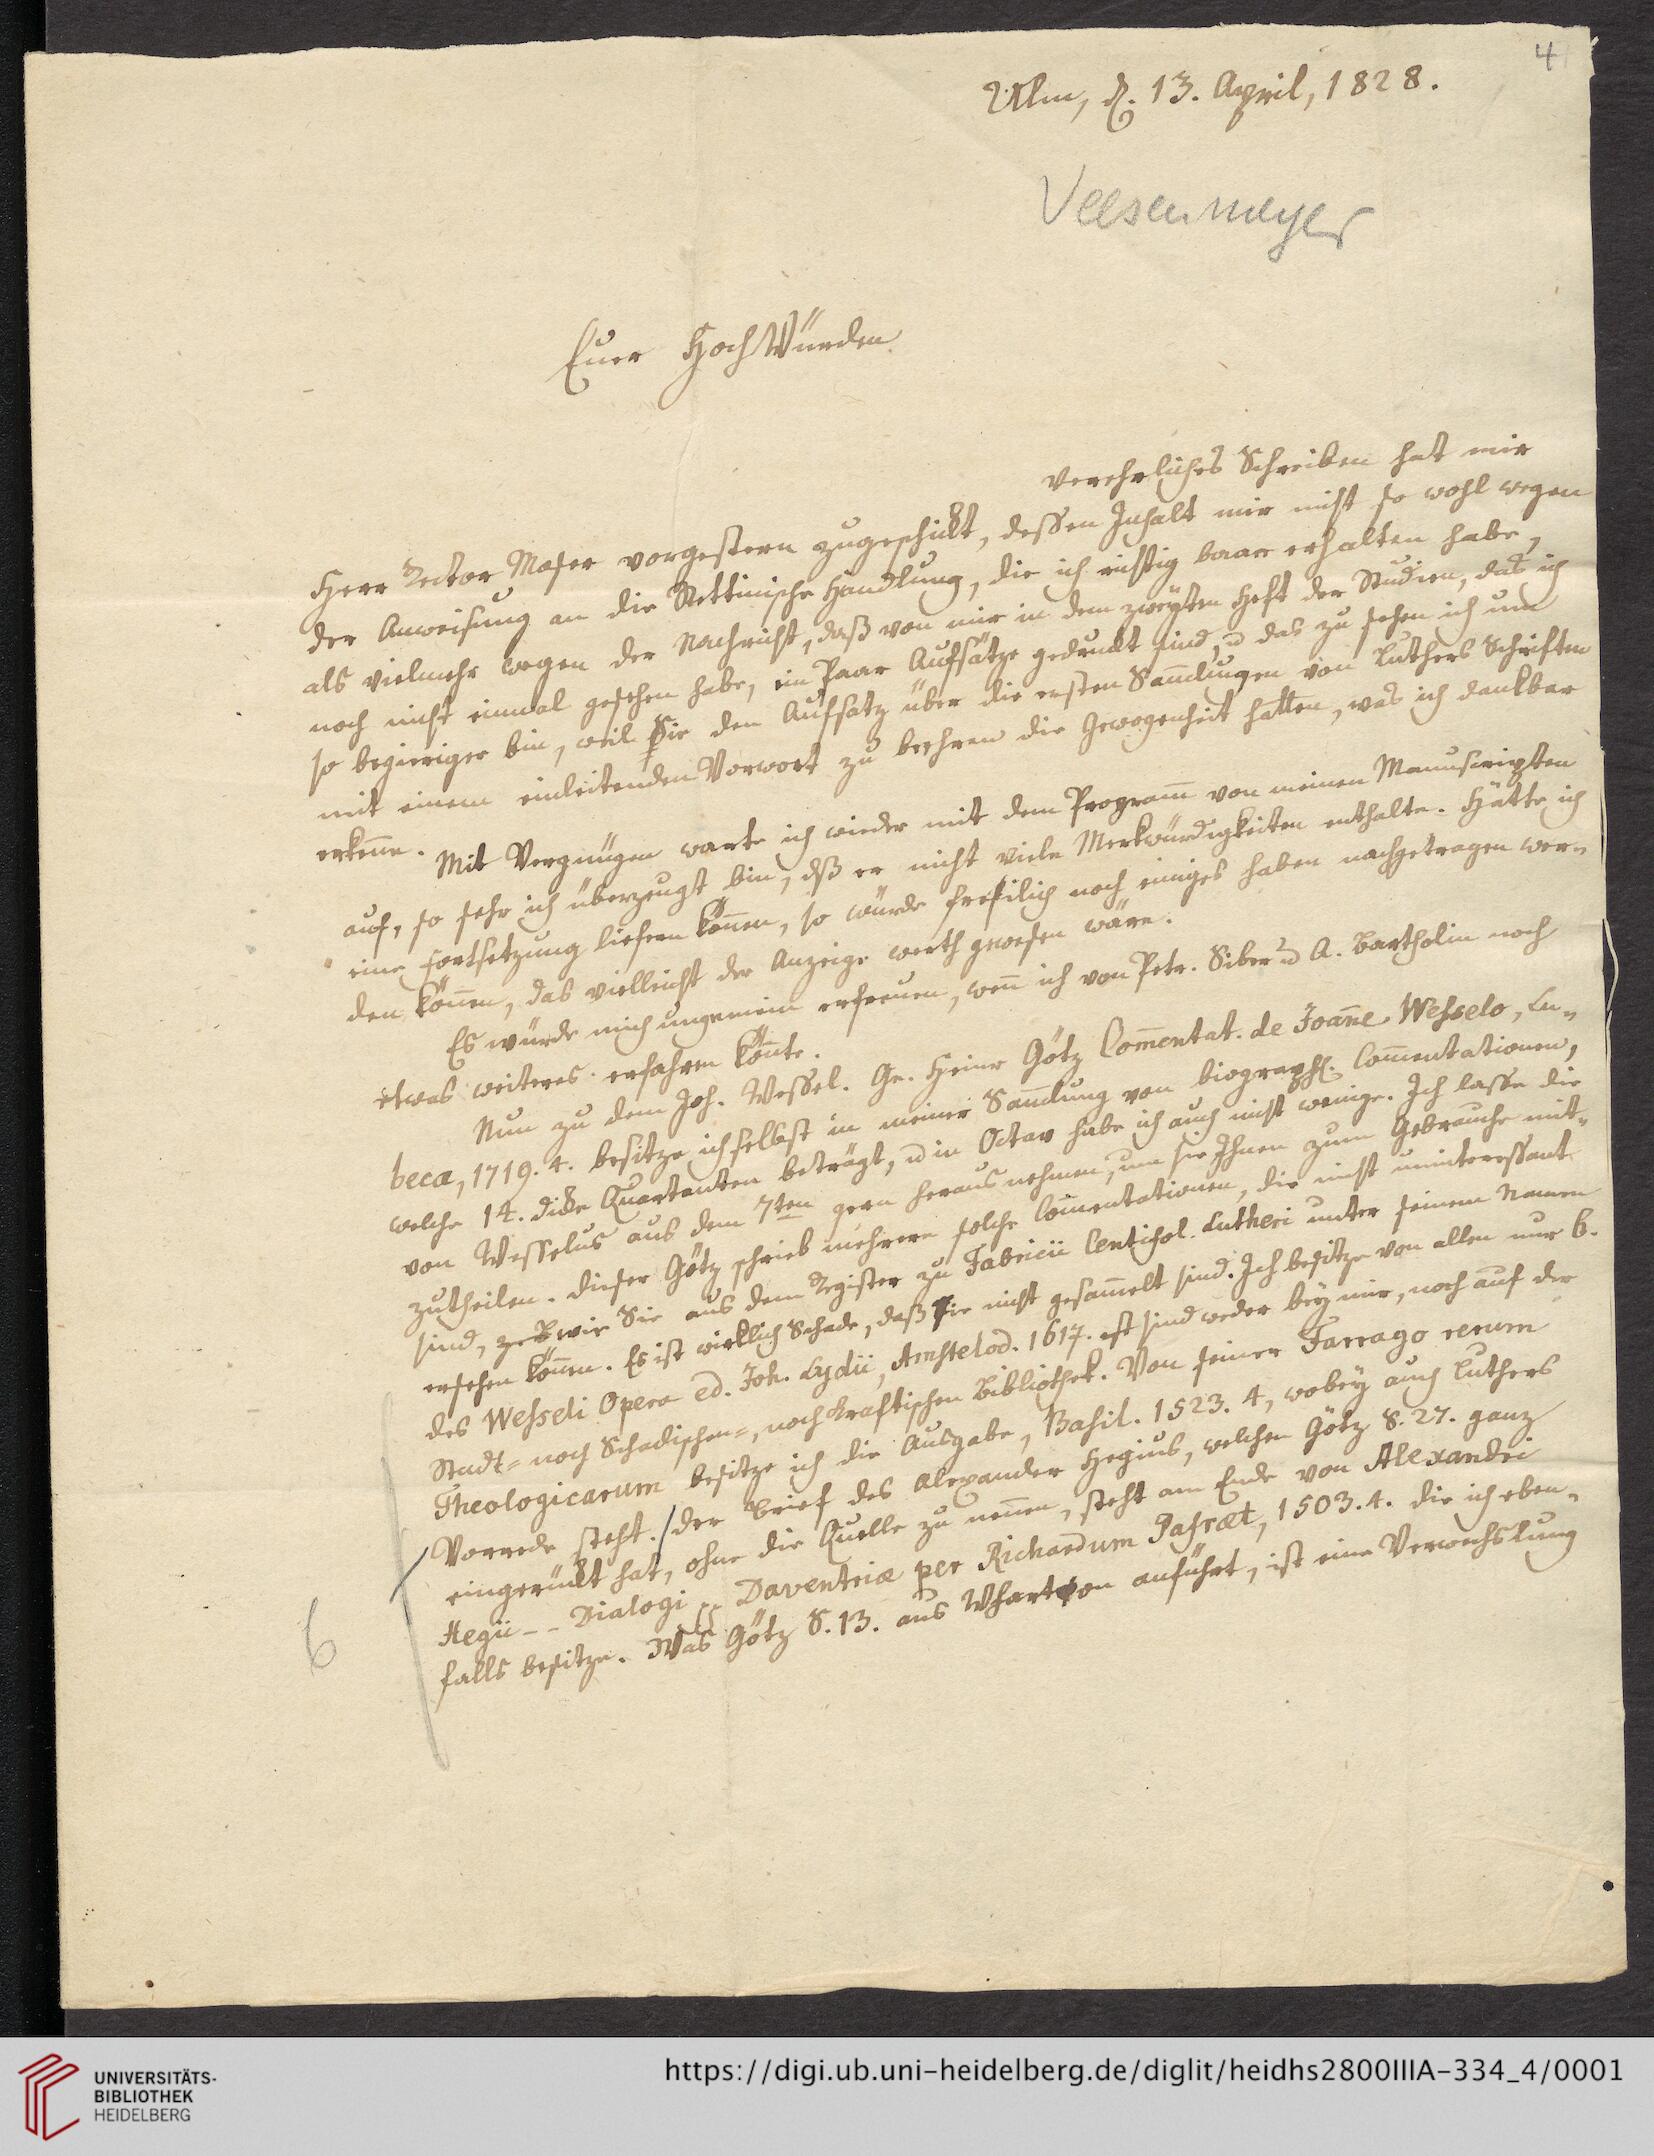 4
Ulm, d. 13. April, 1828.
Veesenmeyer
Euer HochWürden
verehrliches Schreiben hat mir
Herr Rector Moser vorgestern zugeschikt, dessen Inhalt mir nicht so wohl wegen
der Anweisung an die Stettinische Handlung, die ich richtig baar erhalten habe,
als vielmehr wegen der Nachricht, daß von mir in dem zweyten Heft der Studien, das ich
noch nicht einmal gesehen habe, ein Paar Aufsätze gedruckt sind, u das zu sehen ich um
so begieriger bin, weil Sie den Aufsatz über die ersten Sam̄lungen von Luthers Schriften
mit einem einleitenden Vorwort zu beehren die Gewogenheit hatten, was ich dankbar
erken̄e. Mit Vergnügen warte ich wieder mit dem Program̄ von meinen Manuscripten
auf, so sehr ich überzeugt bin, dß er nicht viele Merkwürdigkeiten enthalte. Hätte ich
eine Fortsetzung liefern kön̄en, so würde freilich noch einiges haben nachgetragen wer-
den kön̄en, das vielleicht der Anzeige werth gewesen wäre.
Es würde mich ungemein erfreuen, wen̄ ich von Petr. Siber u A. Bartholin noch
etwas weiteres erfahren kön̄te.
Nun zu dem Joh. Wessel. Ge. Heinr Götz Com̄entat. de Joan̄e Wesselo, Lu-
becæ, 1719. 4. besitze ich selbst in meiner Sam̄lung von biograph. Com̄entationen,
welche 14. dicke Quartanten beträgt, u in Octav habe ich auch nicht wenige. Ich lasse die
von Wesselus aus dem 7ten gern herausnehmen, um sie Ihnen zum Gebrauche mit-
zutheilen. Dieser Götz schrieb mehrere solche Com̄entationen, die nicht uninteressant
sind, wie Sie aus dem Register zu Fabricii Centifol. Lutheri unter seinem Namen
ersehen kön̄en. Es ist wirklich Schade, daß sie nicht gesam̄elt sind. Ich besitze von allen nur 6.
des Wesseli Opera ed. Joh. Lydii, Amstelod. 1617. sind weder bey mir, noch auf der
Stadt- noch Schadischen-, noch Kraftischen Bibliothek. Von seiner Farrago rerum
Theologicarum besitze ich die Ausgabe, Basil. 1523. 4, wobey auch Luthers
Vorrede steht. / Der Brief des Alexander Hegius, welchen Götz S. 27. ganz
eingerükt hat, ohne die Quelle zu nen̄en, steht am Ende von Alexandri
Hegii - - Dialogi - - Daventriæ per Richardum Pafraet, 1503. 4. die ich eben-
falls besitze. Was Götz S. 13. aus Wharton anführt, ist eine Verwechslung
6
UNIVERSITÄTS-
BIBLIOTHEK
HEIDELBERG
https://digi.ub.uni-heidelberg.de/diglit/heidhs2800IIIA-334_4/0001